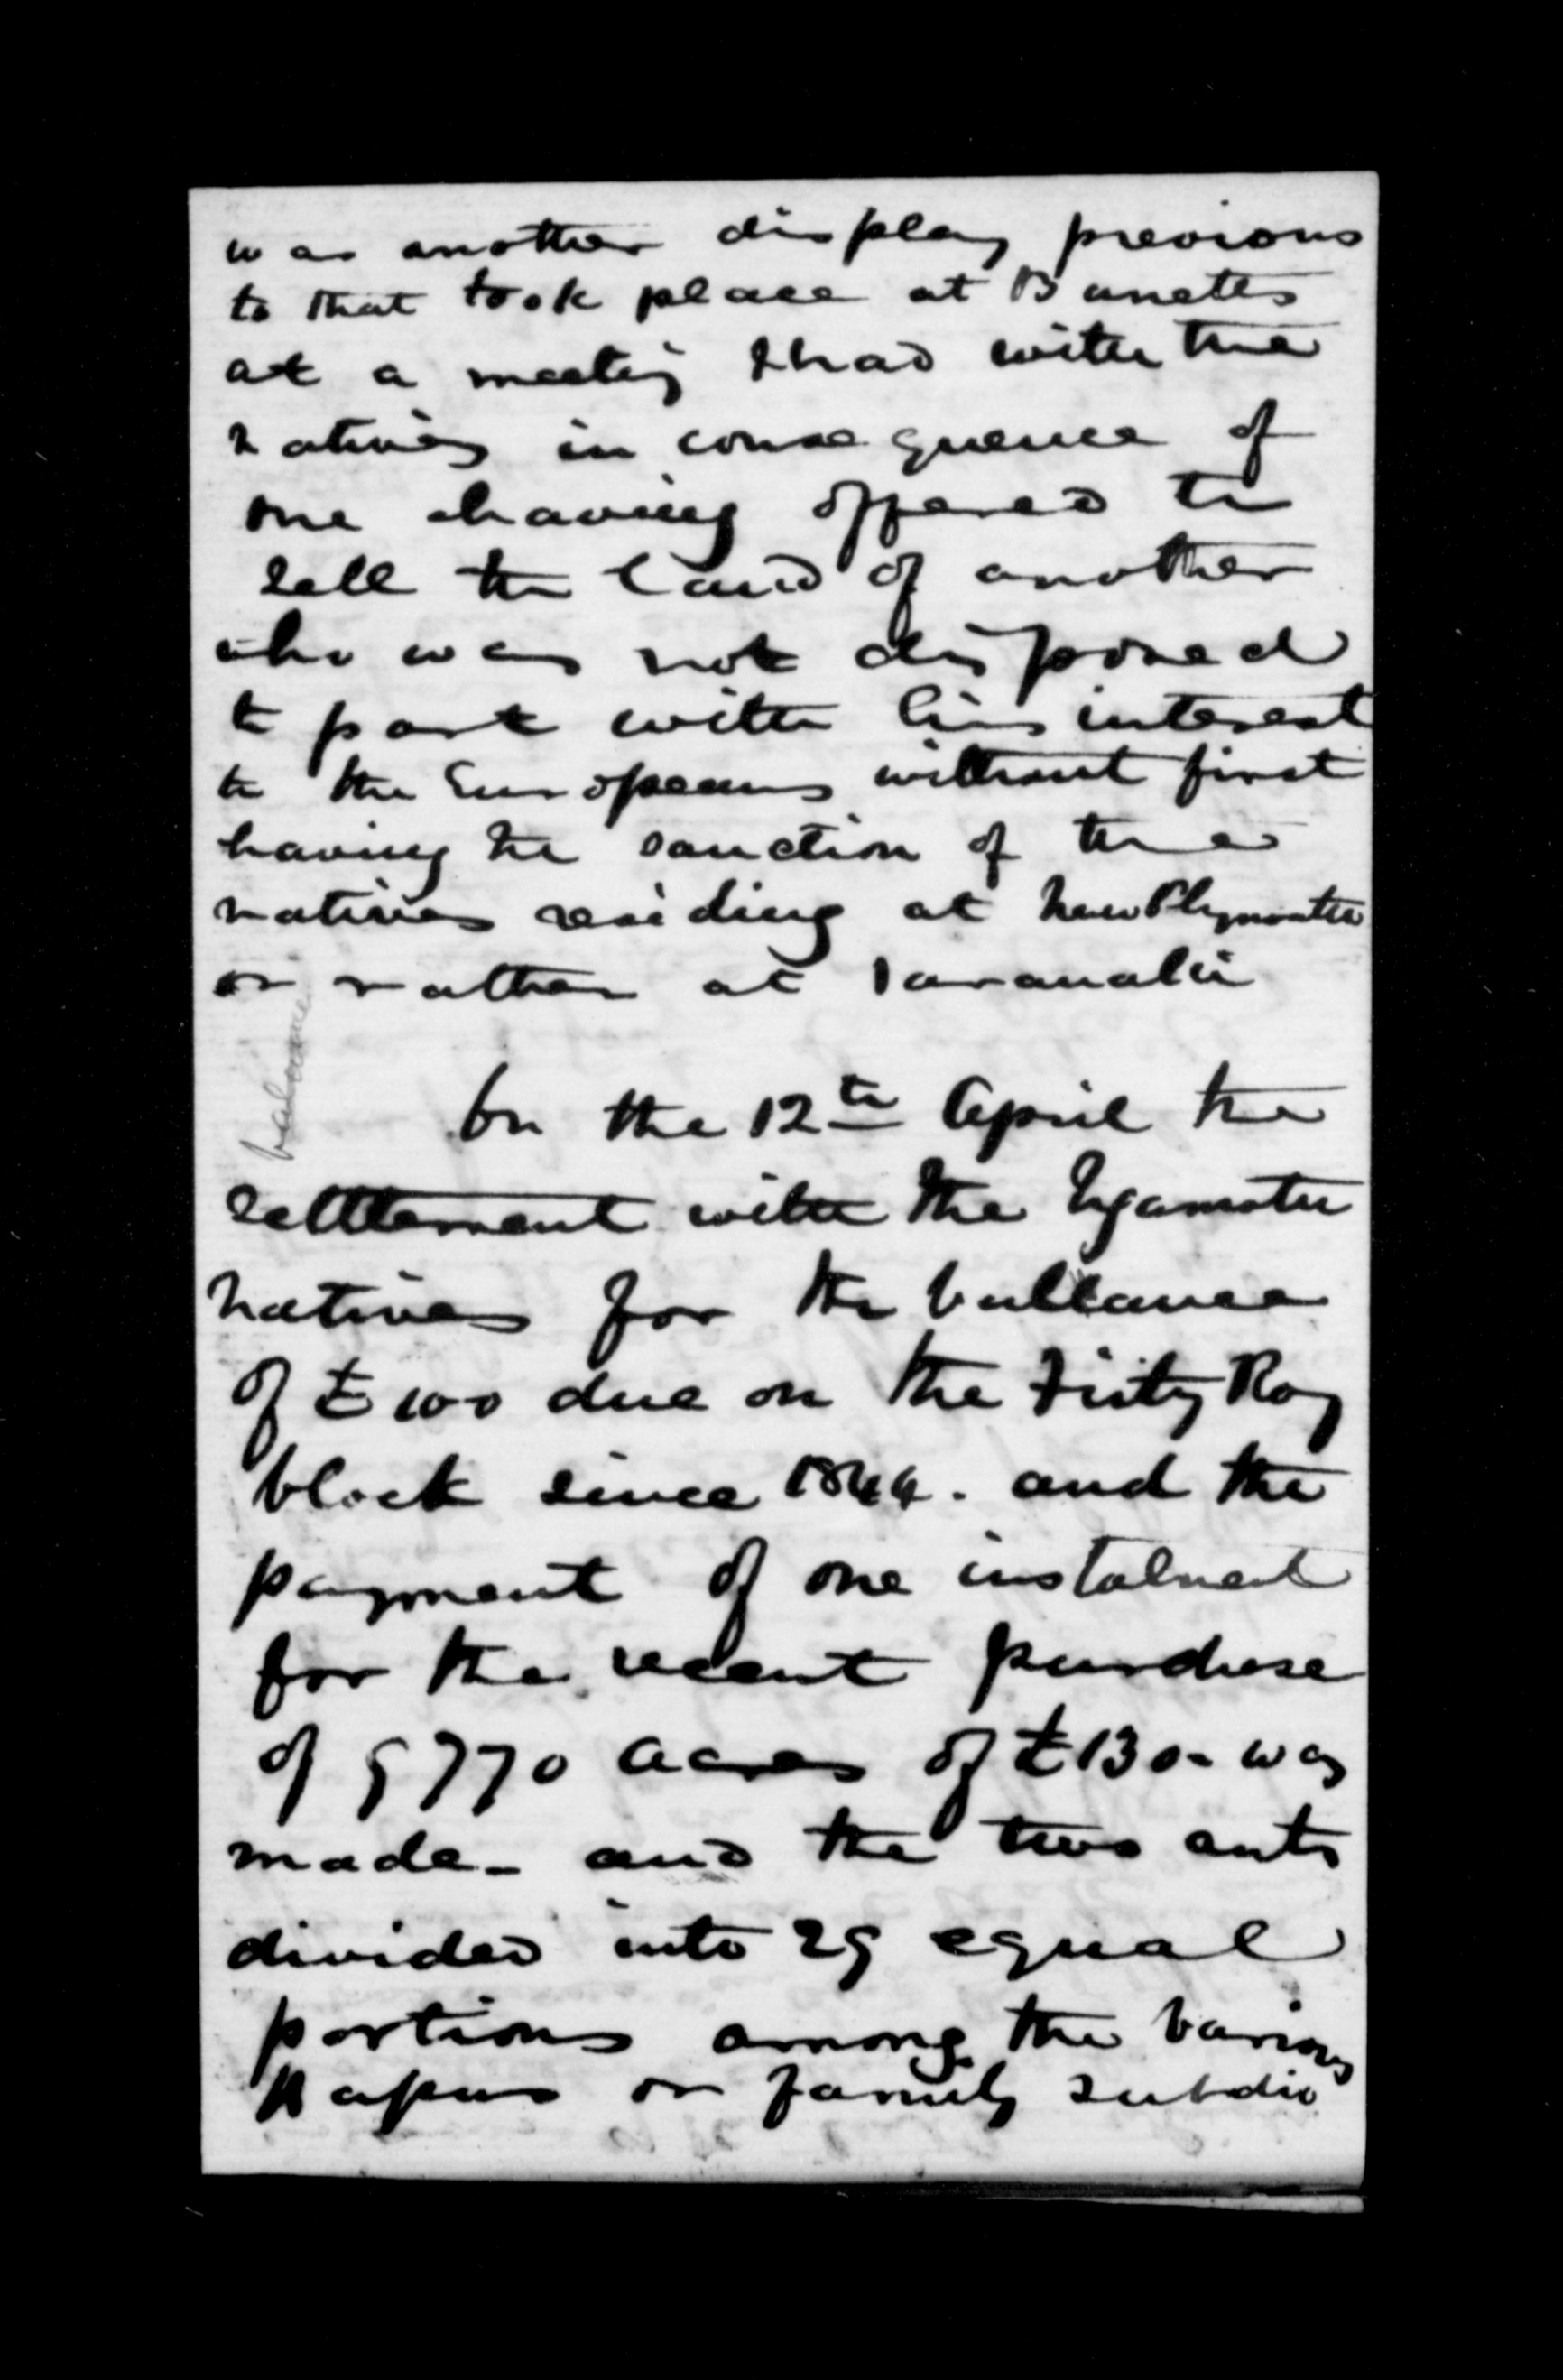 was another display previous
to that took place at
at a meeting I had with the
natives in consequence of
one having offered to
sell the land of another
who was not disposed
to part with his interest
to the Europeans without first
having the sanction of the
natives residing at New Plymouth
or rather at Taranaki
ballance
On the 12th April the
settlement with the Ngamotu
natives for the ballance
of £100 due on the Fitz Roy
block since 1844. and the
payment of one instalment
for the recent purchase
of 9770 acres of £130- was
made- and the two
divided into 29 equal
portions among the various
hapus or family subdiv